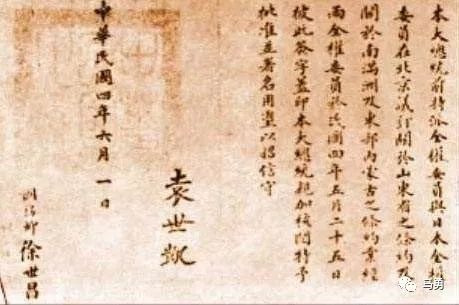 本大總統前特派全權委員與日本全權
委員在北京議訂關於山東省之條約及
關於南滿洲及東部內蒙古之條約業經
兩全權委員於民國四年五月二十五日
彼此簽字蓋印本大總統親加核閱特予
批准並署名用璽以昭信守
袁世凱
中華民國四年六月一日
國務卿 徐世昌
马勇